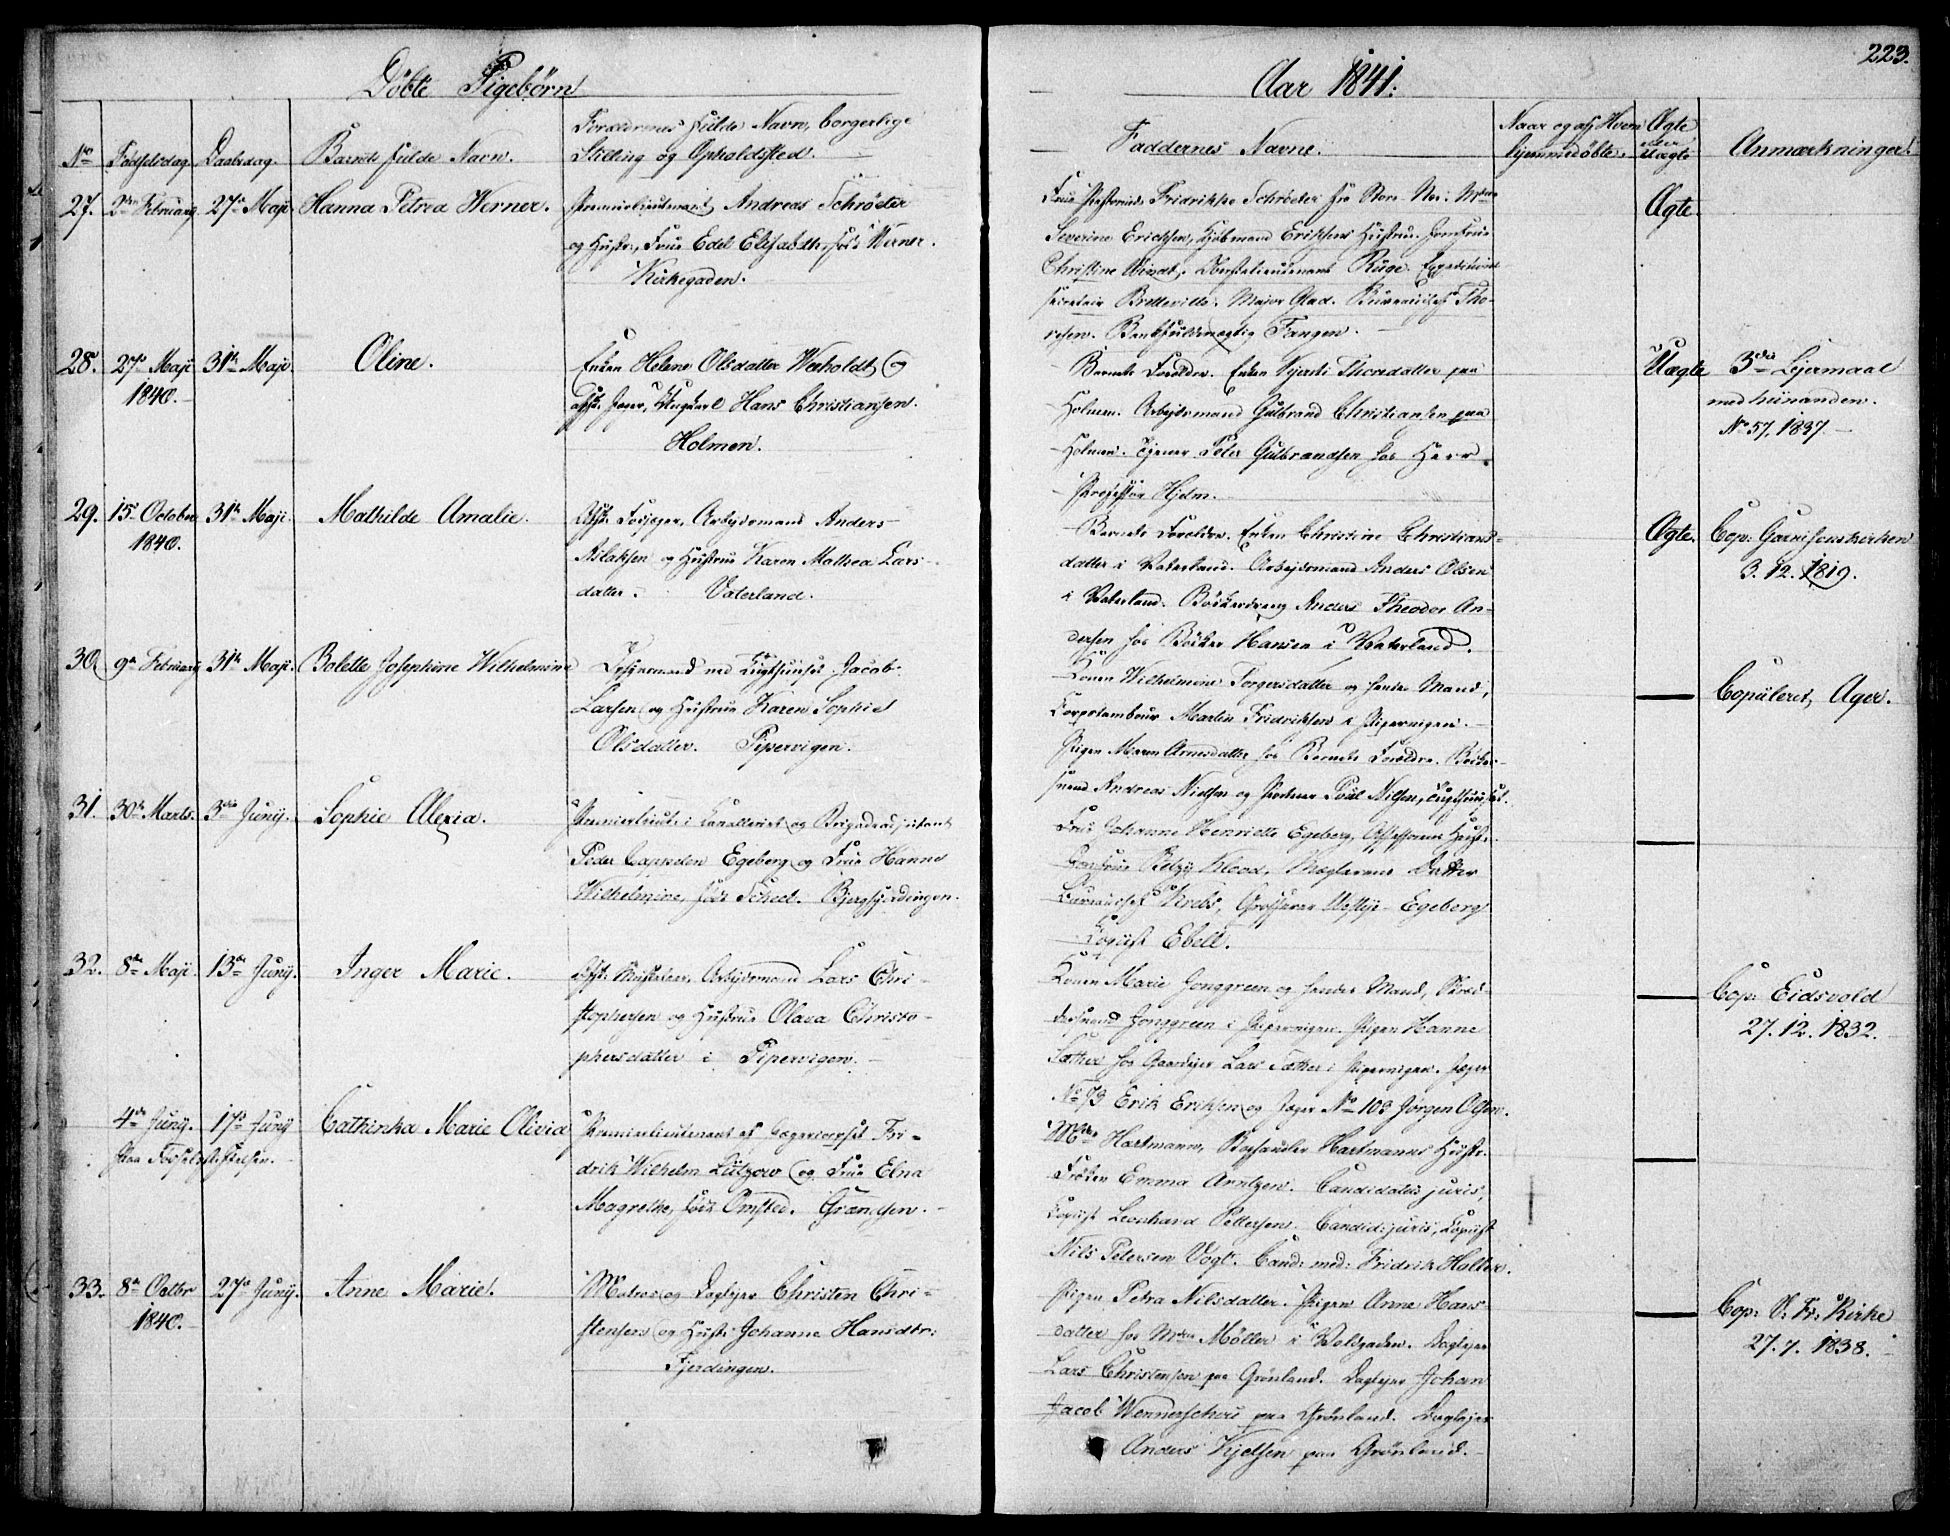 223.
Döbte Pigebörn
Aar 1841.
No Födselsdag. Daabsdag. Barnets fulde Navn.
Forældrenes fulde Navn, borgerlige
Stilling og Opholdsted.
Faddernes Navne.
Naar og af Hvem
hjemmedöbte.
Ægte
eller
Uægte
Anmærkninger.
27. 3die Februar 27de Maji Hanna Petrea Werner.
Premierlieutenant Andreas Schröeter
og Hustru, Frue Edel Elisabeth, föd Werner.
Kirkegaden.
Fridrikke Schröeter
Severine Erichsen, Kjöbmand Eriksens Hustru. Jomfrue
Christine Windt. Oberstlieutenant Ruge. Expeditions
secretair Bretteville. Major Glad. Bureauchef Tho-
resen. Bankfuldmægtig Fangen.
Ægte.
28. 27de Maji 31te Maji Oline.
1840.
Enken Helene Olsdatter Weeholdt og
afsk. Jæger, Ungkarl Hans Christiansen.
Holmen.
Barnets Forældre. Enken Kjersti Thoredatter paa
Holmen. Arbejdsmand Gulbrand Christiansen paa
Holmen. Tjener Peter Gulbrandsen hos Herr
Professor Hjelm.
Uægte
3die Lejermaal
med hinanden.
No 57, 1837.
29. 15de October 31te Maji. Mathilde Amalie.
1840.
Afsk. Arbejdsmand Anders
Aslaksen og Hustrue Karen Mathea Lars-
datter. Vaterland.
Barnets Forældre. Enken Christine Christians-
datter i Vaterland. Arbejdsmand Anders Olsen
i Vaterland. Bödkerdreng Anders Theodor An-
dersen hos Bödker Hansen i Vaterland.
Ægte.
Cop: Garnisonskirken
3. 12. 1819.
30. 9de Februar 31te Maji. Bolette Josephine Wilhelmine
ved Tugthuuset Jacob
Larsen og Hustrue Karen Sophie
Olsdatter. Pipervigen.
Konen Wilhelmine Torgersdatter og hendes Mand,
Corpstambour Martin Fridriksen i Pipervigen.
Pigen Maren Arnesdatter hos Barnets Forældre.
Andreas Nielsen og Poul Nilsen, Tugthuuset.
Copuleret, Ager.
31. 30te Marts. 3die Junij. Sophie Alexia.
Premierlieut: i Cavalleriet og Brigadeadjutant
Peder Cappelen Egeberg og Frue Hanne
Wilhelmine, föd Scheel. Bjergfjerdingen.
Frue Johanne Henriette Egeberg, Assessorens Hustr.
Jomfrue Betzy Kleod, Mæglerens Datter
Bureauchef Krebs, Grosserer Westye Egeberg
Copist Ebell.
32. 8de Maji. 13de Junij. Inger Marie.
Afsk: Arbejdsmand Lars Chri-
stophersen og Hustrue Olava Christo-
phersdatter i Pipervigen.
Konen Marie Jonggreen og hendes Mand, Skræd-
dersvend Jonggreen i Pipervigen. Pigen Hanne
Sæther hos Gaardejer Lars Sæther i Pipervigen. Jæger
No 73 Erik Eriksen og Jæger No 108 Jörgen Olsen.
Cop: Eidsvold
27. 12. 1832.
4de Junij. 17de Junij Cathinka Marie Olivia
Paa Födselsstiftelsen.
Premierlieutenant af Jægercorpset Fri-
drik Wilhelm Lützow og Frue Elna
Magrethe, föd Omsted. Grændsen.
Mdme Hartmann, Boghandler Hartmanns Hustr.
Fröken Emma Arntzen. Candidatus juris,
Copist Leonhard Pettersen. Candid: juris, Copist
Nils Petersen Vogt. Cand: med: Fridrik Holter.
33. 8de Octbr 27de Junij. Anne Marie.
1840.
Matros og Daglejer Christen Chri-
stensen og Hustr. Johanne Hansdtr:
Fjerdingen.
Pigen Petra Nilsdatter. Pigen Anne Hans-
datter hos Mdme Möller i Voldgaden. Daglejer
Lars Christensen paa Grönland. Daglejer Johan
Jacob Wennerschou paa Grönland. Daglejer
Anders Kjelsen paa Grönland.
Cop: V: Fr: Kirke
27. 7. 1838.